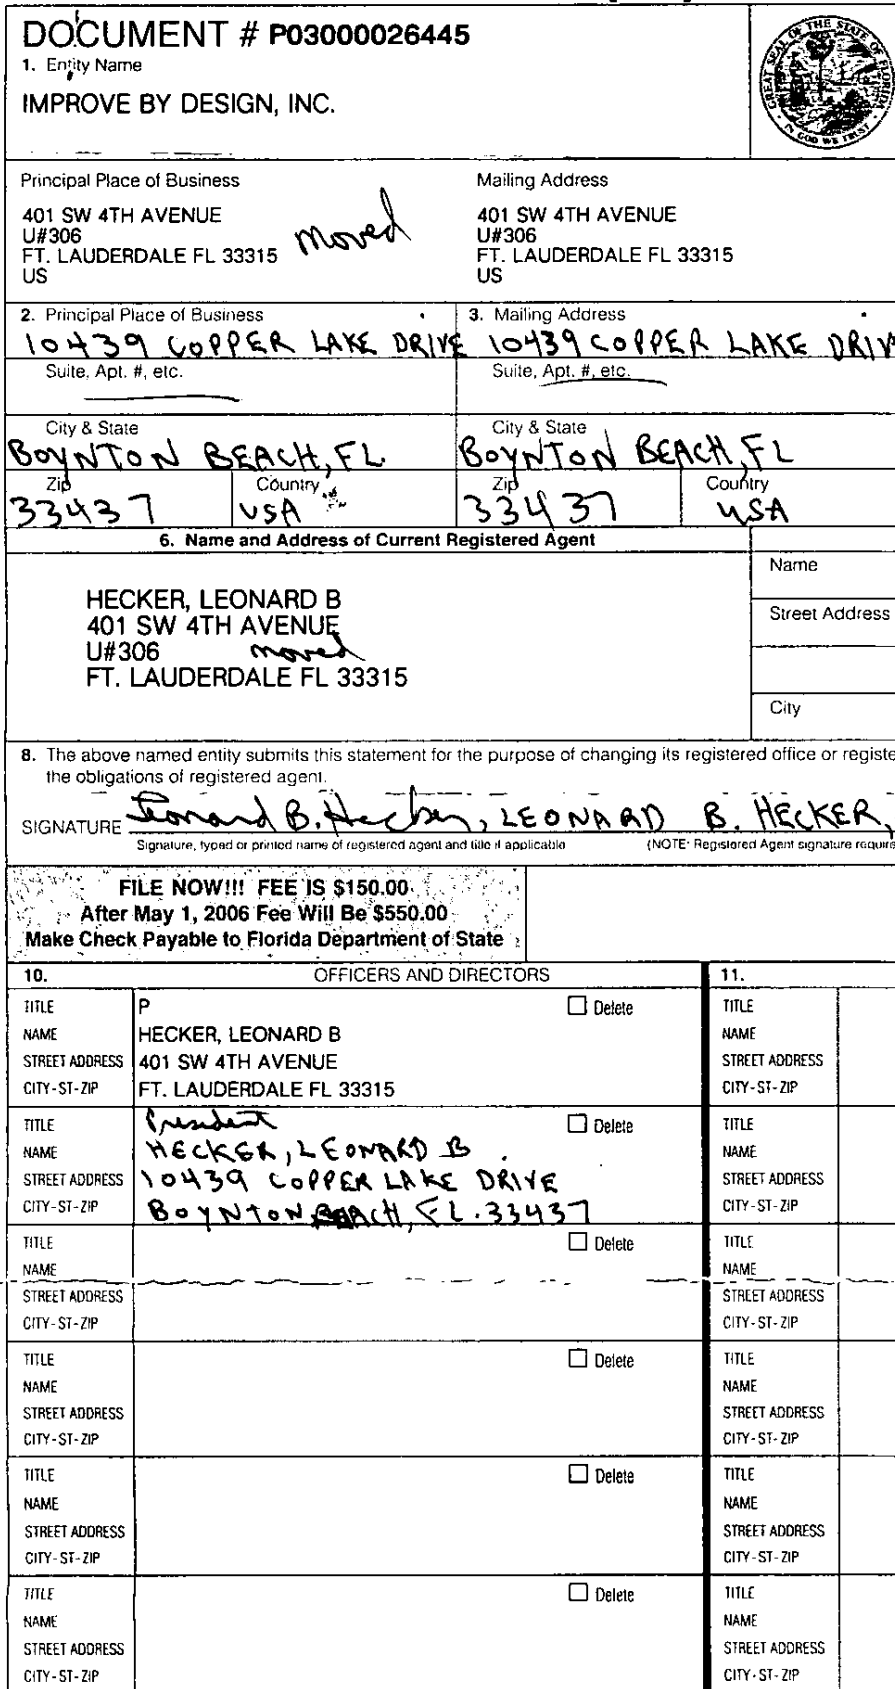 DOCUMENT # P03000026445
1. Entity Name
IMPROVE BY DESIGN, INC.
GREAT SEAL OF THE STATE OF FLORIDA
IN GOD WE TRUST
Principal Place of Business
401 SW 4TH AVENUE
U#306
FT. LAUDERDALE FL 33315
US
moved
Mailing Address
401 SW 4TH AVENUE
U#306
FT. LAUDERDALE FL 33315
US
2. Principal Place of Business
10439 COPPER LAKE DRIVE
Suite, Apt. #, etc.
City & State
BOYNTON BEACH, FL.
Zip
33437
Country
USA
3. Mailing Address
10439 COPPER LAKE DRIV
Suite, Apt. #, etc.
City & State
BOYNTON BEACH, FL
Zip
33437
Country
USA
6. Name and Address of Current Registered Agent
HECKER, LEONARD B
401 SW 4TH AVENUE
U#306 moved
FT. LAUDERDALE FL 33315
Name
Street Address
City
8. The above named entity submits this statement for the purpose of changing its registered office or registe
the obligations of registered agent.
SIGNATURE Leonard B. Hecker, LEONARD B. HECKER,
Signature, typed or printed name of registered agent and title if applicable (NOTE: Registered Agent signature require
FILE NOW!!! FEE IS $150.00
After May 1, 2006 Fee Will Be $550.00
Make Check Payable to Florida Department of State
10. OFFICERS AND DIRECTORS 11.
TITLE P Delete TITLE
NAME HECKER, LEONARD B NAME
STREET ADDRESS 401 SW 4TH AVENUE STREET ADDRESS
CITY-ST-ZIP FT. LAUDERDALE FL 33315 CITY-ST-ZIP
TITLE President Delete TITLE
NAME HECKER, LEONARD B. NAME
STREET ADDRESS 10439 COPPER LAKE DRIVE STREET ADDRESS
CITY-ST-ZIP BOYNTON BEACH, FL. 33437 CITY-ST-ZIP
TITLE Delete TITLE
NAME NAME
STREET ADDRESS STREET ADDRESS
CITY-ST-ZIP CITY-ST-ZIP
TITLE Delete TITLE
NAME NAME
STREET ADDRESS STREET ADDRESS
CITY-ST-ZIP CITY-ST-ZIP
TITLE Delete TITLE
NAME NAME
STREET ADDRESS STREET ADDRESS
CITY-ST-ZIP CITY-ST-ZIP
TITLE Delete TITLE
NAME NAME
STREET ADDRESS STREET ADDRESS
CITY-ST-ZIP CITY-ST-ZIP